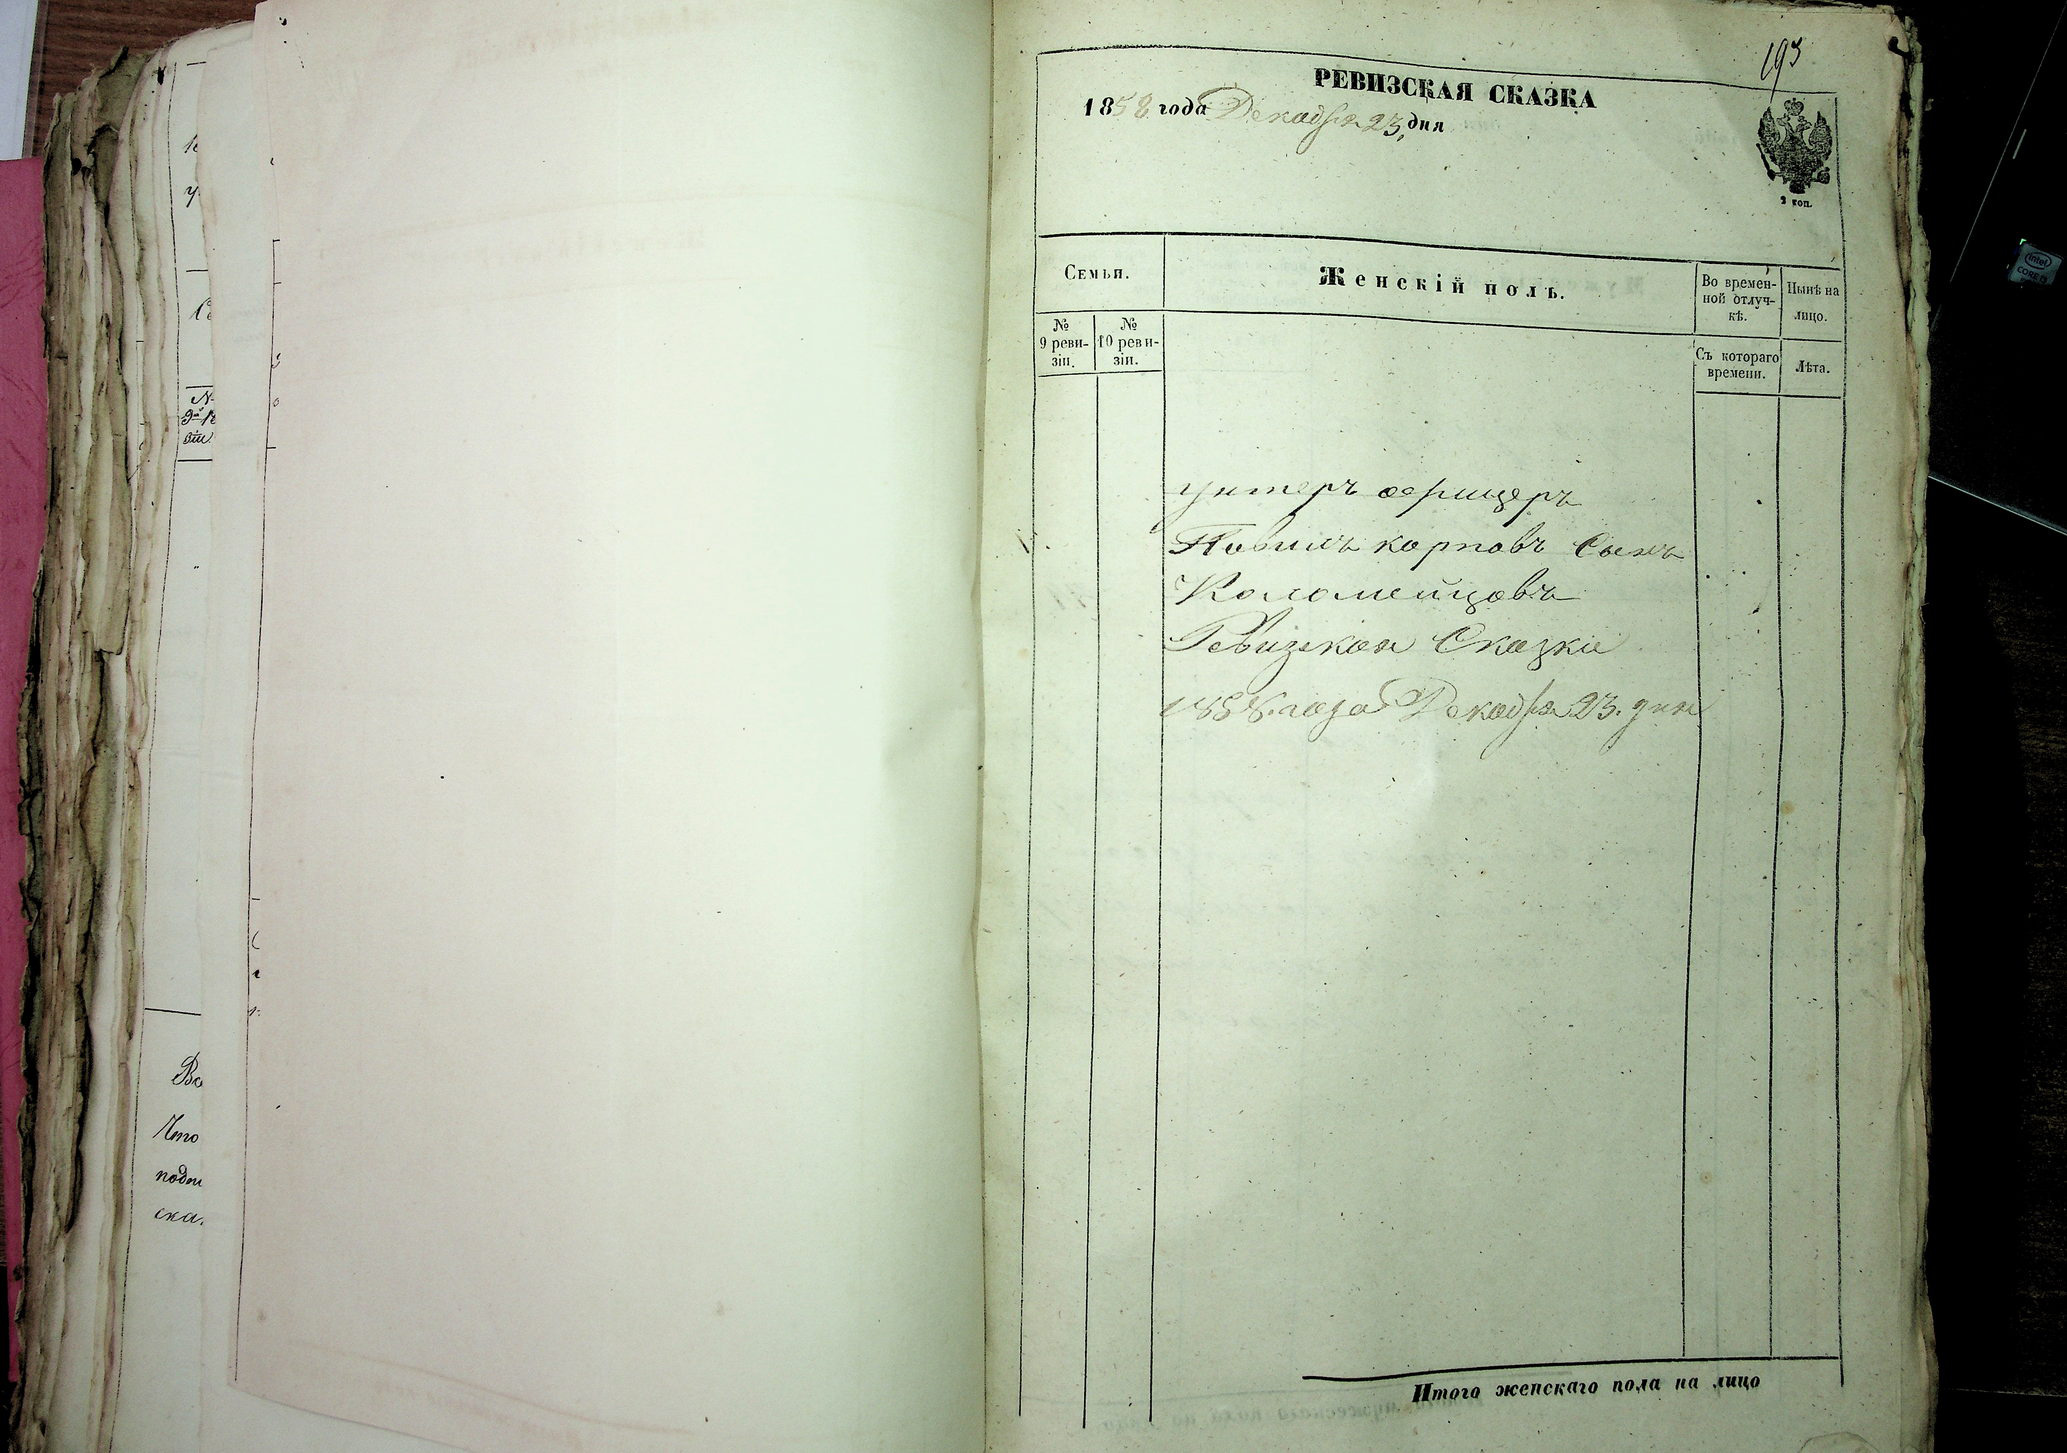 193
РЕВИЗСКАЯ СКАЗКА
1858 года Декабря 23, дня
2 коп.
Семьи.
Женскій полъ.
Во времен-
ной отлуч-
кѣ.
Нынѣ на
лицо.
№
9 реви-
зіи.
№
10 реви-
зіи.
Съ котораго
времени.
Лѣта.
унтеръ офицеръ
карповъ Сынъ
Коломейцовъ
Ревизская Сказка
1858. года Декабря 23. дня
Итого женскаго пола на лицо
Что
intel
CORE i5